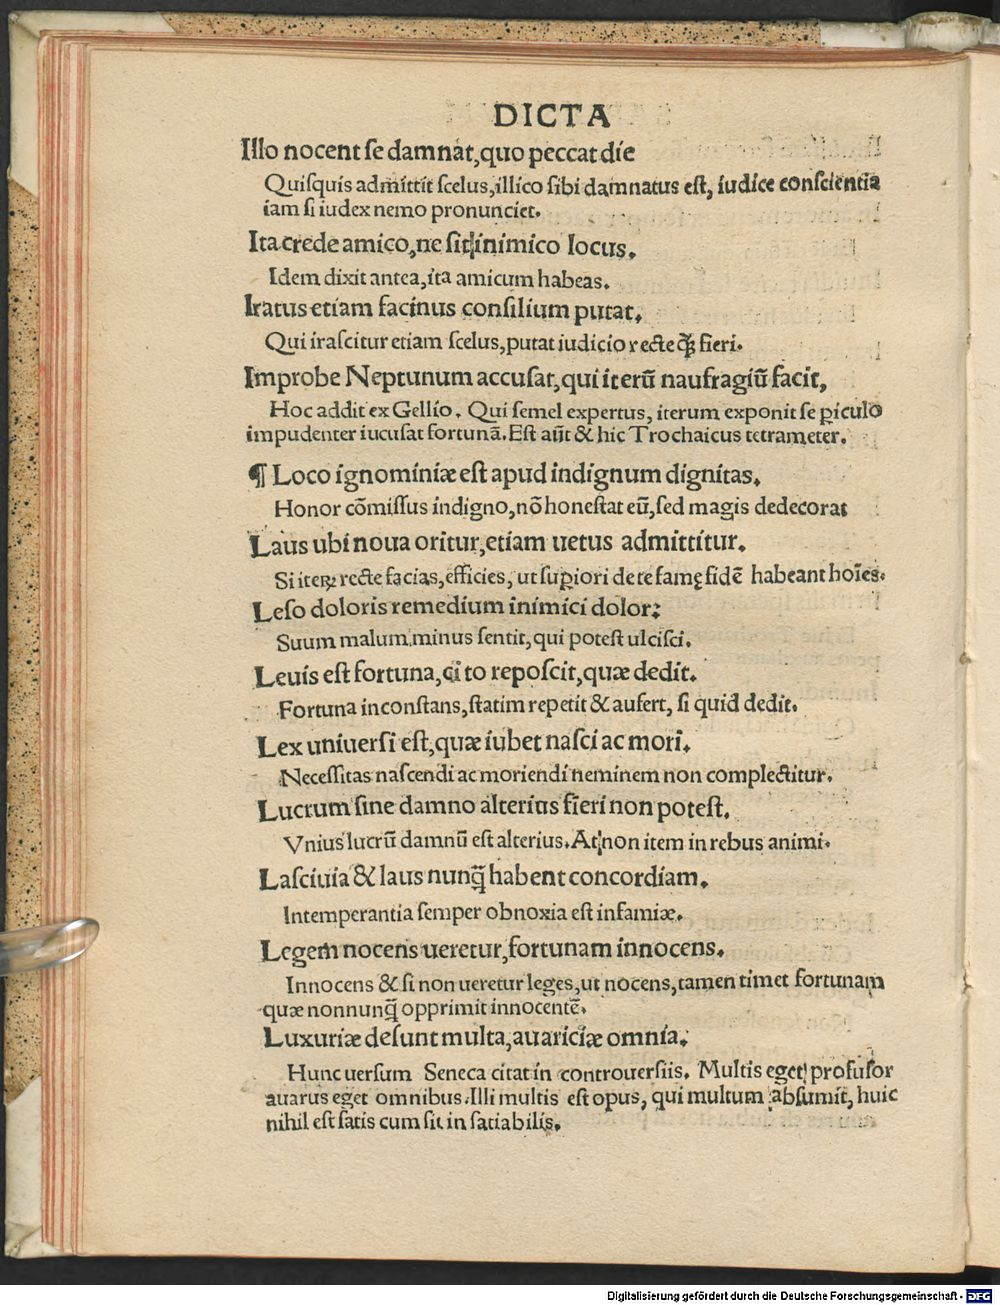 DICTA
Illo nocent se damnat, quo peccat die
Quisquis admittit scelus, illico sibi damnatus est, iudice conscientia
iam si iudex nemo pronunciet.
Ita crede amico, ne sit inimico locus.
Idem dixit antea, ita amicum habeas.
Iratus etiam facinus consilium putat.
Qui irascitur etiam scelus, putat iudicio recte fieri.
Improbe Neptunum accusat, qui iterū naufragiū facit,
Hoc addit ex Gellio. Qui semel expertus, iterum exponit se ꝑiculo
impudenter iucusat fortunā. Est aūt & hic Trochaicus tetrameter.
¶ Loco ignominiæ est apud indignum dignitas.
Honor cōmissus indigno, nō honestat eū, sed magis dedecorat
Laus ubi noua oritur, etiam uetus admittitur.
Si iteꝝ recte facias, efficies, ut suꝑiori de te famę fidē habeant hoīes.
Leso doloris remedium inimici dolor:
Suum malum minus sentit, qui potest ulcisci.
Leuis est fortuna, cito reposcit, quæ dedit.
Fortuna inconstans, statim repetit & aufert, si quid dedit.
Lex uniuersi est, quæ iubet nasci ac mori.
Necessitas nascendi ac moriendi neminem non complectitur.
Lucrum sine damno alterius fieri non potest.
Vnius lucrū damnū est alterius. At non item in rebus animi.
Lasciuia & laus nunq̄ habent concordiam.
Intemperantia semper obnoxia est infamiæ.
Legem nocens ueretur, fortunam innocens.
Innocens & si non ueretur leges, ut nocens, tamen timet fortunam
quæ nonnunq̄ opprimit innocentē.
Luxuriæ desunt multa, auariciæ omnia.
Hunc uersum Seneca citat in controuersiis. Multis eget profusor
auarus eget omnibus. Illi multis est opus, qui multum absumit, huic
nihil est satis cum sit in satiabilis.
Digitalisierung gefördert durch die Deutsche Forschungsgemeinschaft - DFG